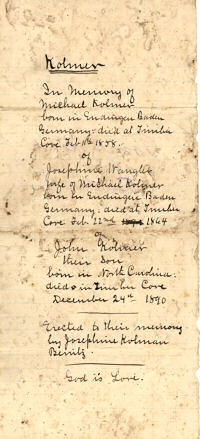 Kolmer
In Memory of
Michael Kolmer
born in Endingen Baden
Germany: died at Timber
Cove Feb. 11th 1858.
of
Josephine Wangler
wife of Michael Kolmer
born in Endingen Baden
Germany: died at Timber
Cove Feb. 22nd 1864
of
John Kolmer
their Son
born in North Carolina:
died in Timber Cove
December 24th 1890
Erected to their memory
by Josephine Kolman
Benitz.
God is Love.